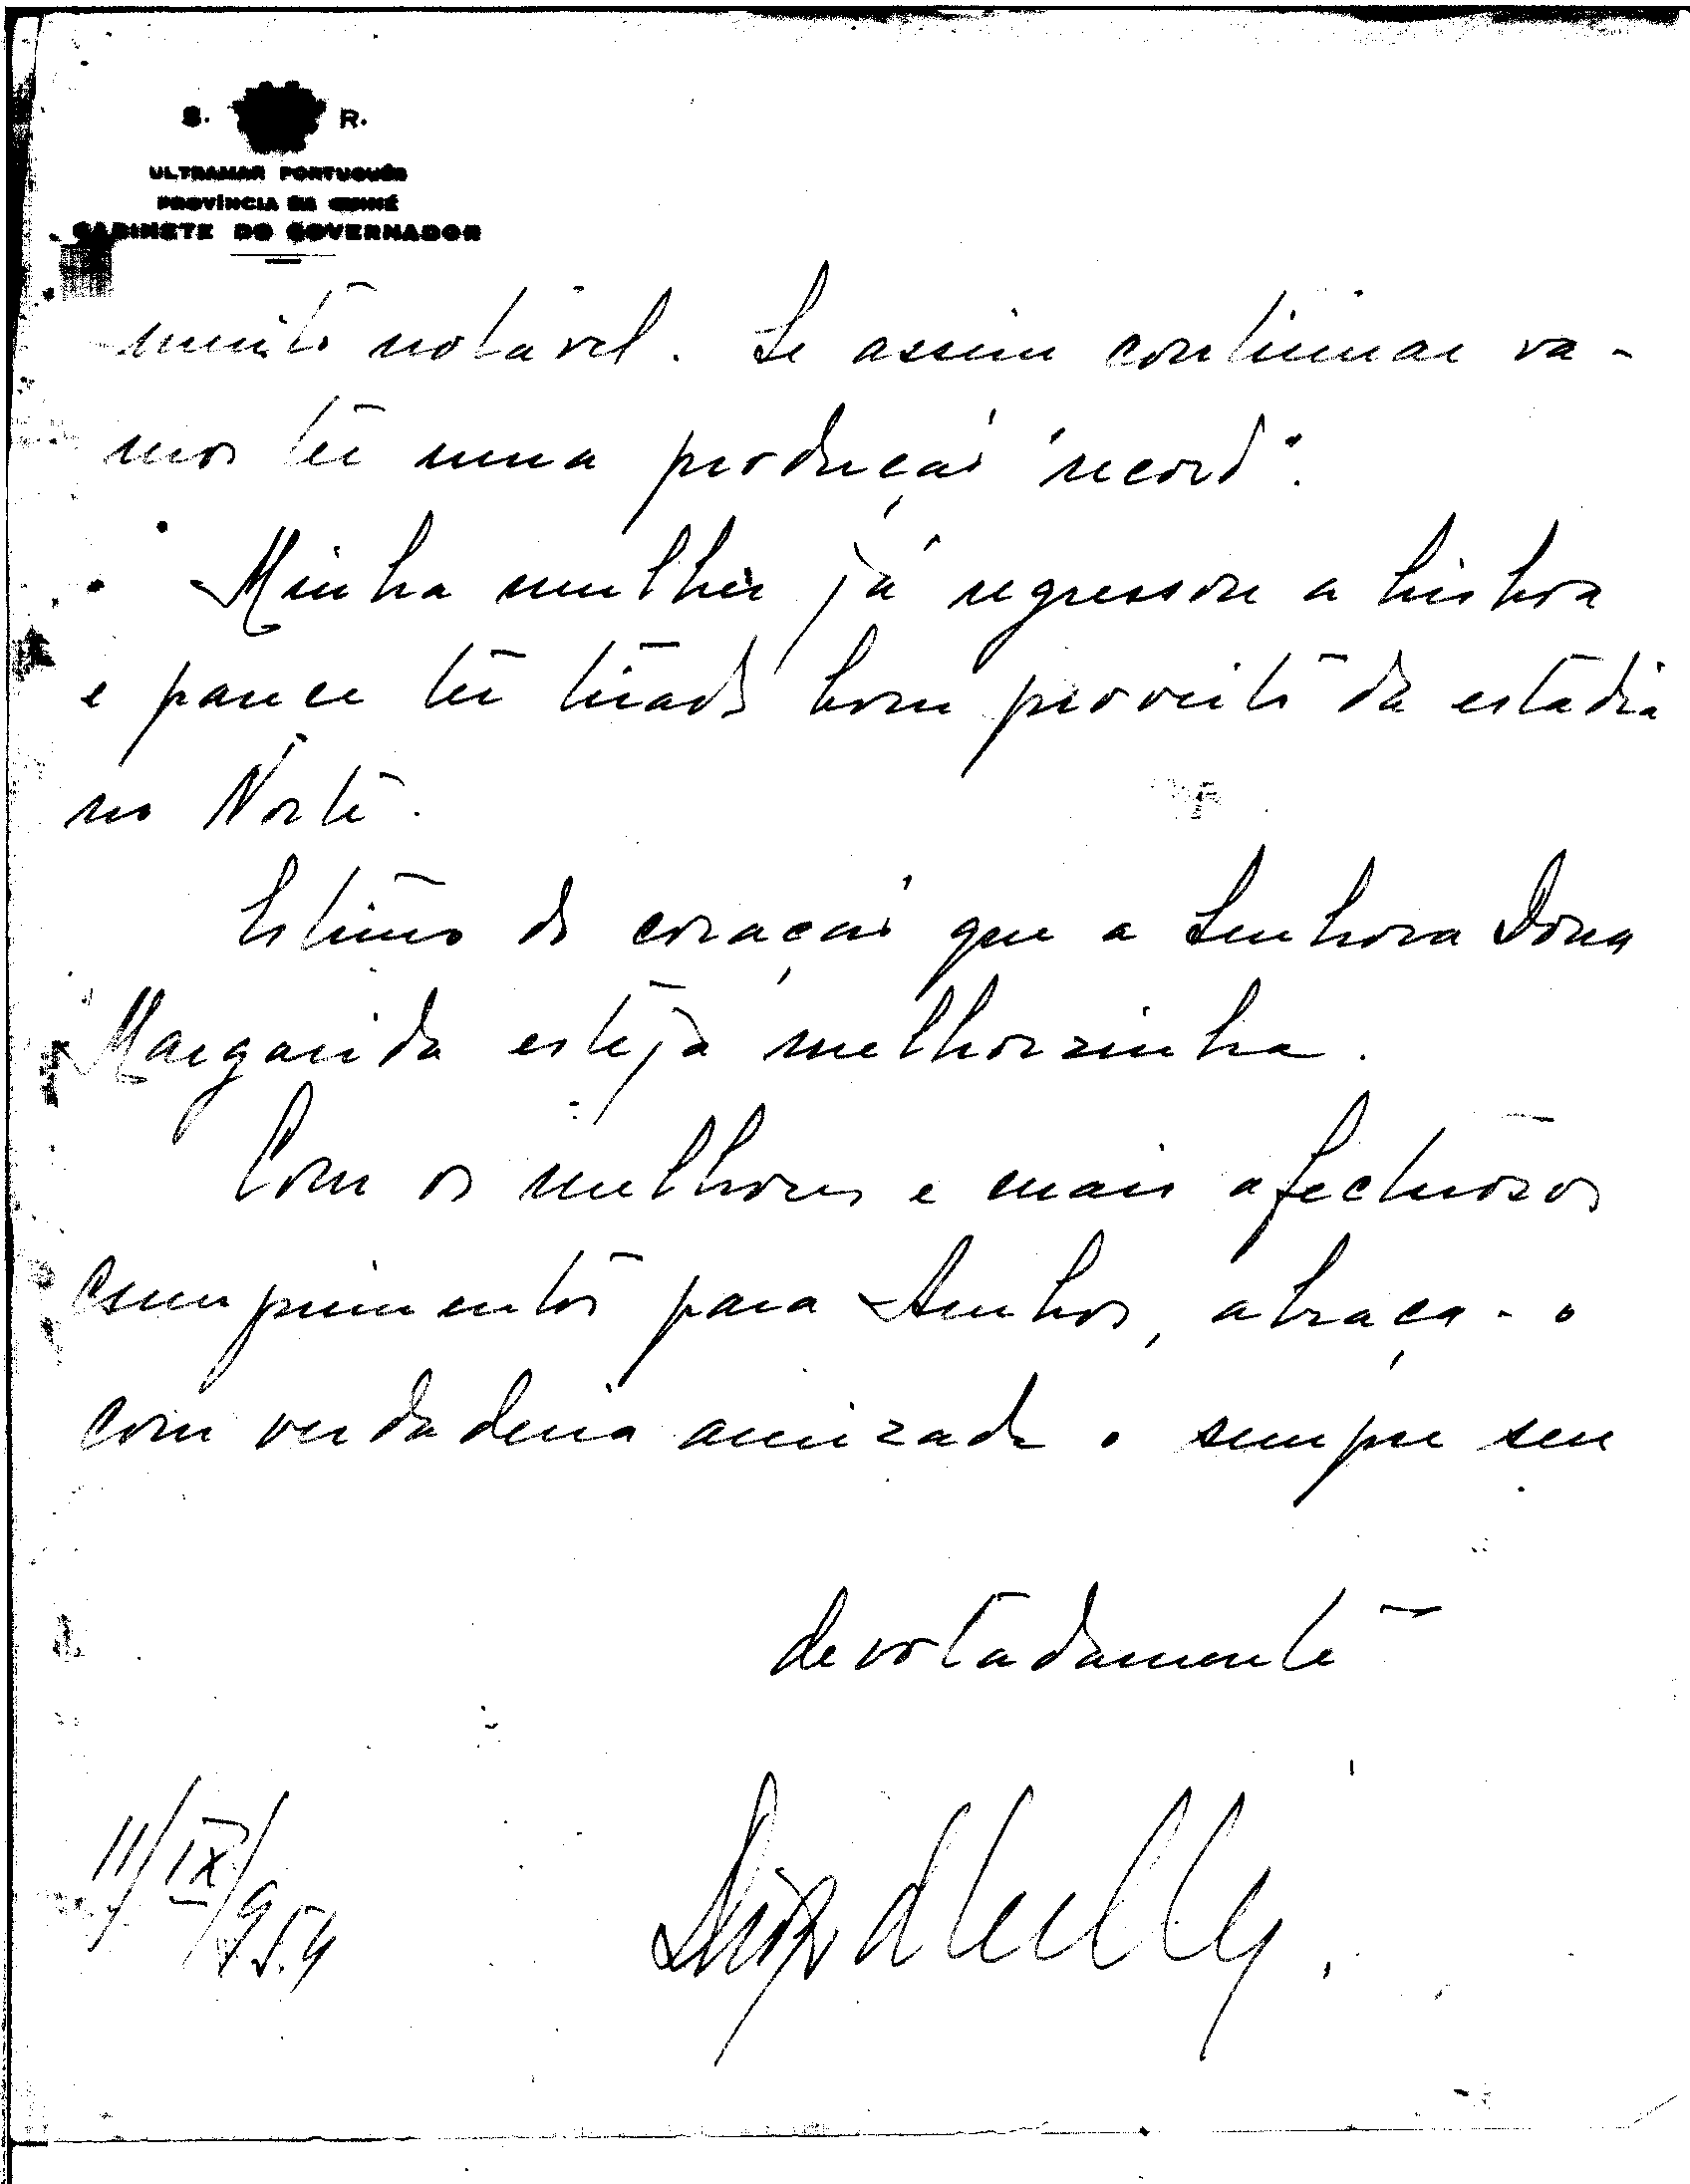 S. R.
ULTRAMAR PORTUGUÊS
PROVÍNCIA DA GUINÉ
GABINETE DO GOVERNADOR
muito notável. Se assim continuar va-
mos ter uma produção "record".
Minha mulher já regressou a Lisboa
e parece ter tirado bom proveito da estadia
no Norte.
Estimo do coração que a Senhora Dona
Margarida esteja melhorzinha.
Com os melhores e mais afectuosos
cumprimentos para Ambos, abraça-o
com verdadeira amizade o sempre seu
devotadamente
11/IX/954